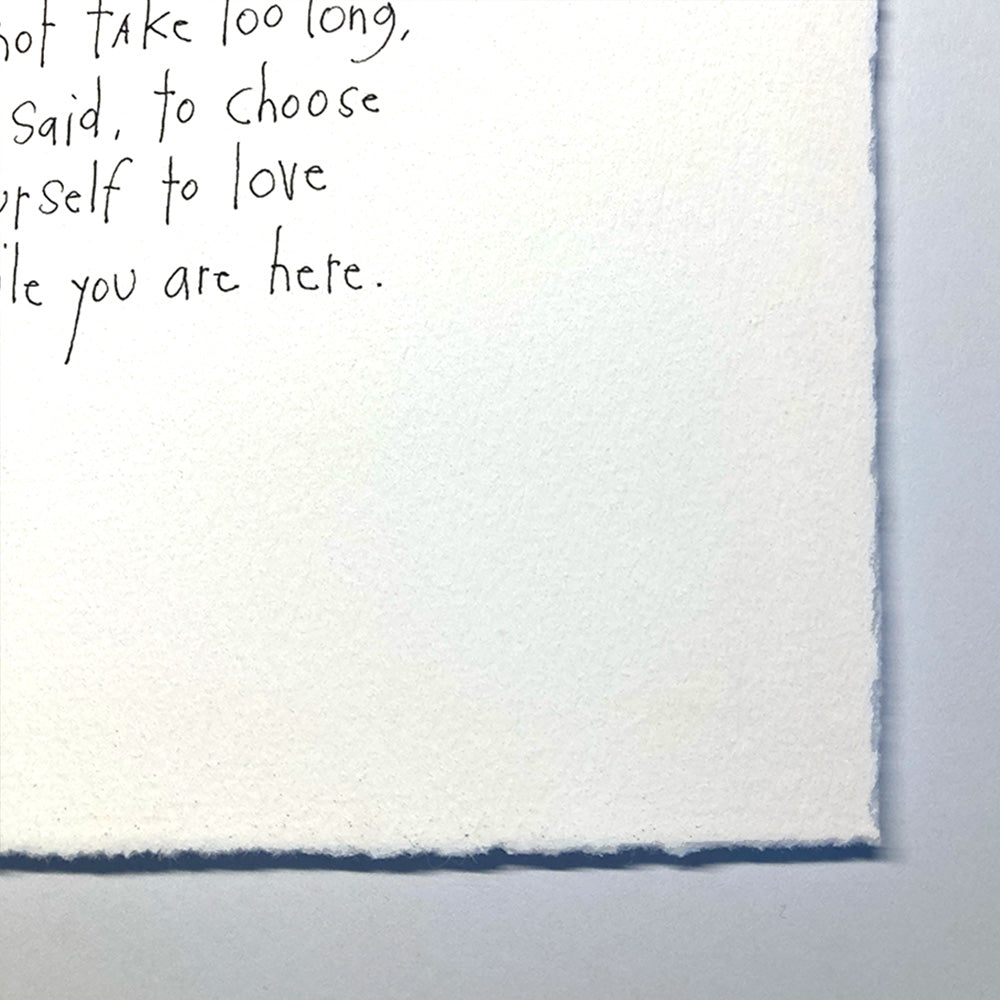 not take too long,
said, to choose
urself to love
ile you are here.